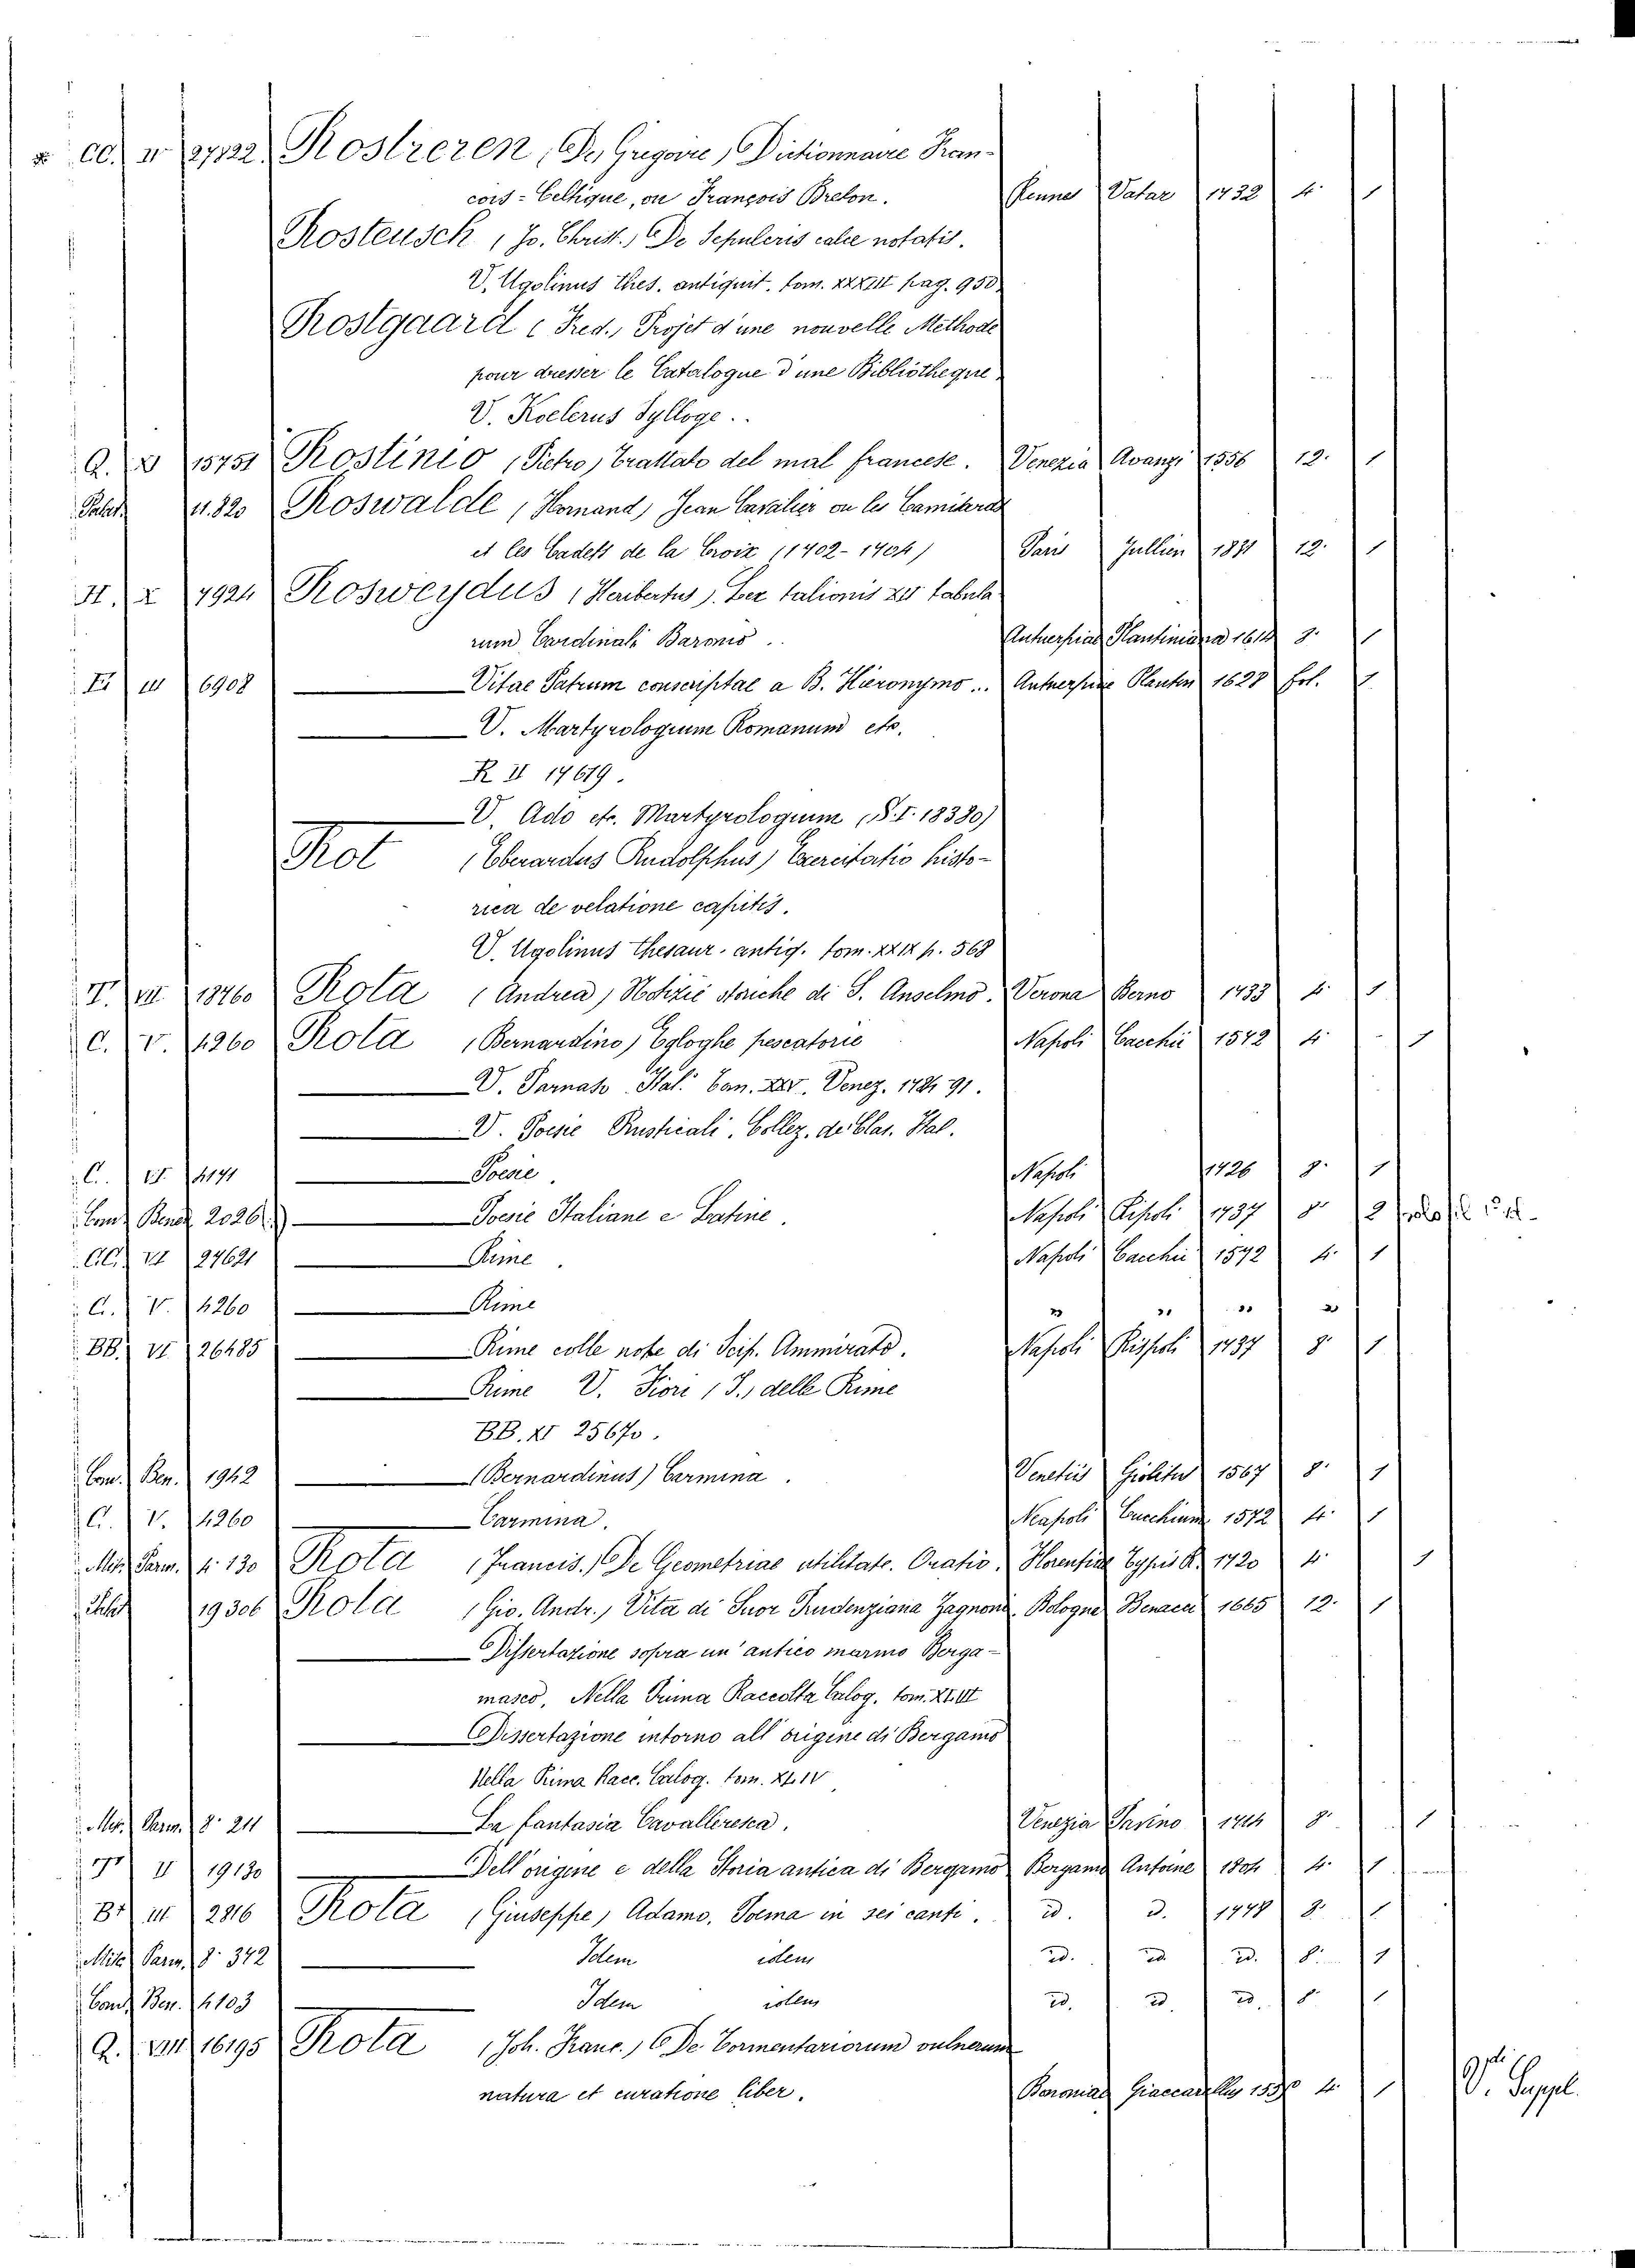 CC. II 27822 Rostrenen, (De, Grégoire) Dictionnaire Fran-
cois-Celtique, ou François Breton. Rennes Vatar 1732 4° 1
Rosteusck (Jo. Christ.) De Sepulcris calce notatis.
V. Ugolinus Thes. antiquit. tom. XXXIII pag. 950.
Rostgaard (Fred.) Projet d'une nouvelle Méthode
pour dresser le Catalogue d'une Bibliotheque.
V. Koelerus Sylloge.
Q. X 15751 Rostinio (Pietro) Trattato del mal francese. Venezia Avanzi 1556 12. 1
Palat. 11.820 Roswalde (Hornand) Jean Cavalier ou les Camisards
et les Cadets de la Croix (1702-1704) Paris Jullien 1831 12. 1
H. X 7924 Rosweydus (Heribertus). Lex talionis XII tabula
rum Cardinali Baronio.. Antuerpiae Plantiniana 1614 8. 1
III 6908 Vitae Patrum conscriptae a B. Hieronymo... Antuerpiae Plantin 1628 fol. 1
V. Martyrologium Romanum etc.
R II 17679.
V. Ado etc. Martyrologium (S. I. 18380)
Rot (Eberardus Rudolphus) Exercitatio histo-
rica de velatione capitis.
V. Ugolinus Thesaur. antiq. tom. XXIX p. 568
T. VII 18760 Rota (Andrea) Notizie storiche di S. Anselmo. Verona Berno 1733 4. 1
C. V. 4260 Rota (Bernardino) Egloghe pescatorie Napoli Cacchii 1572 4. 1
V. Parnaso Ital. Can. XXV. Venez. 1784 91.
V. Poesie Rusticali. Collez. de' Clas. Ital.
C. VI. 4171 Poesie. Napoli 1726 8. 1
Com. Bened. 2026 Poesie Italiane e Latine. Napoli Rispoli 1737 8° 2
CC. VI 27621 Rime. Napoli Cacchii 1572 4. 1
C. V. 4260 Rime " " " "
BB. VI 26485 Rime colle note di Scip. Ammirato. Napoli Rispoli 1737 8. 1
Rime V. Fiori (I.) delle Rime
BB. XI 25670.
Com. Ben. 1942 (Bernardinus) Carmina. Venetiis Giolitus 1567 8. 1
C. V. 4260 Carmina. Neapoli Cacchium 1572 4. 1
Misc. Parm. 4. 130 Rota (Francis.) De Geometriae utilitate. Oratio. Florentiae Typis R. 1720 4. 1
Palat 19306 Rota (Gio. Andr.) Vita di Suor Prudenziana Zagnoni. Bologna Benacci 1665 12. 1
Dissertazione sopra un' antico marmo Berga-
masco, Nella Prima Raccolta Calog. tom. XLIII
Dissertazione intorno all' origine di Bergamo
Nella Prima Racc. Calog. tom. XLIV
Misc. Parm. 8. 211 La fantasia Cavalleresca. Venezia Pasino 1744 8. 1
II 19130 Dell' origine e della Storia antica di Bergamo Bergamo Antoine 1804 4. 1
III 2816 Rota (Giuseppe) Adamo, Poema in sei canti. id. id. 1778 8. 1
Misc. Parm. 8. 342 Idem idem id. id. id. 8. 1
Com. Ben. 4103 Idem idem id. id. id. 8. 1
Q. VIII 16195 Rota (Joh. Franc.) De Tormentariorum vulnerum
natura et curatione liber. Bononiae Giaccarelly 4. 1 V. Suppl.